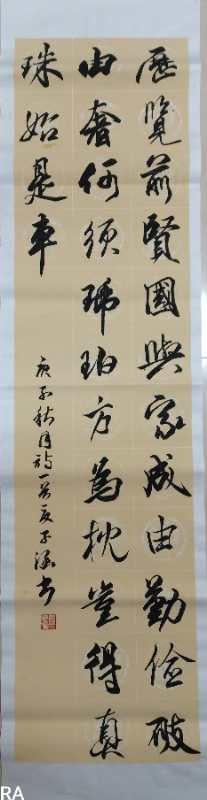 歷覽前賢國與家成由勤儉破
由奢何須琥珀方為枕豈得真
珠始是車
庚子秋月詩一首子涵書
RA